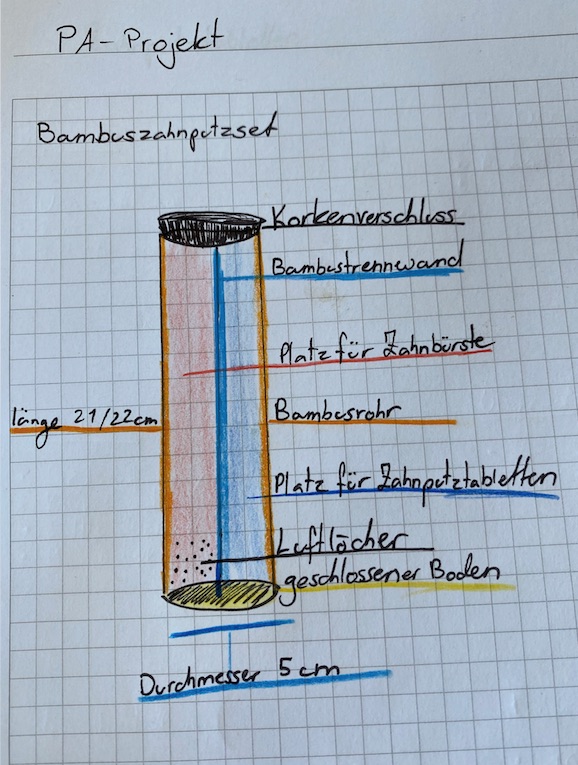 PA-Projekt
Bambuszahnputzset
Korkenverschluss
Bambustrennwand
Platz für Zahnbürste
länge 21/22cm
Bambusrohr
Platz für Zahnputztabletten
Luftlöcher
geschlossener Boden
Durchmesser 5cm